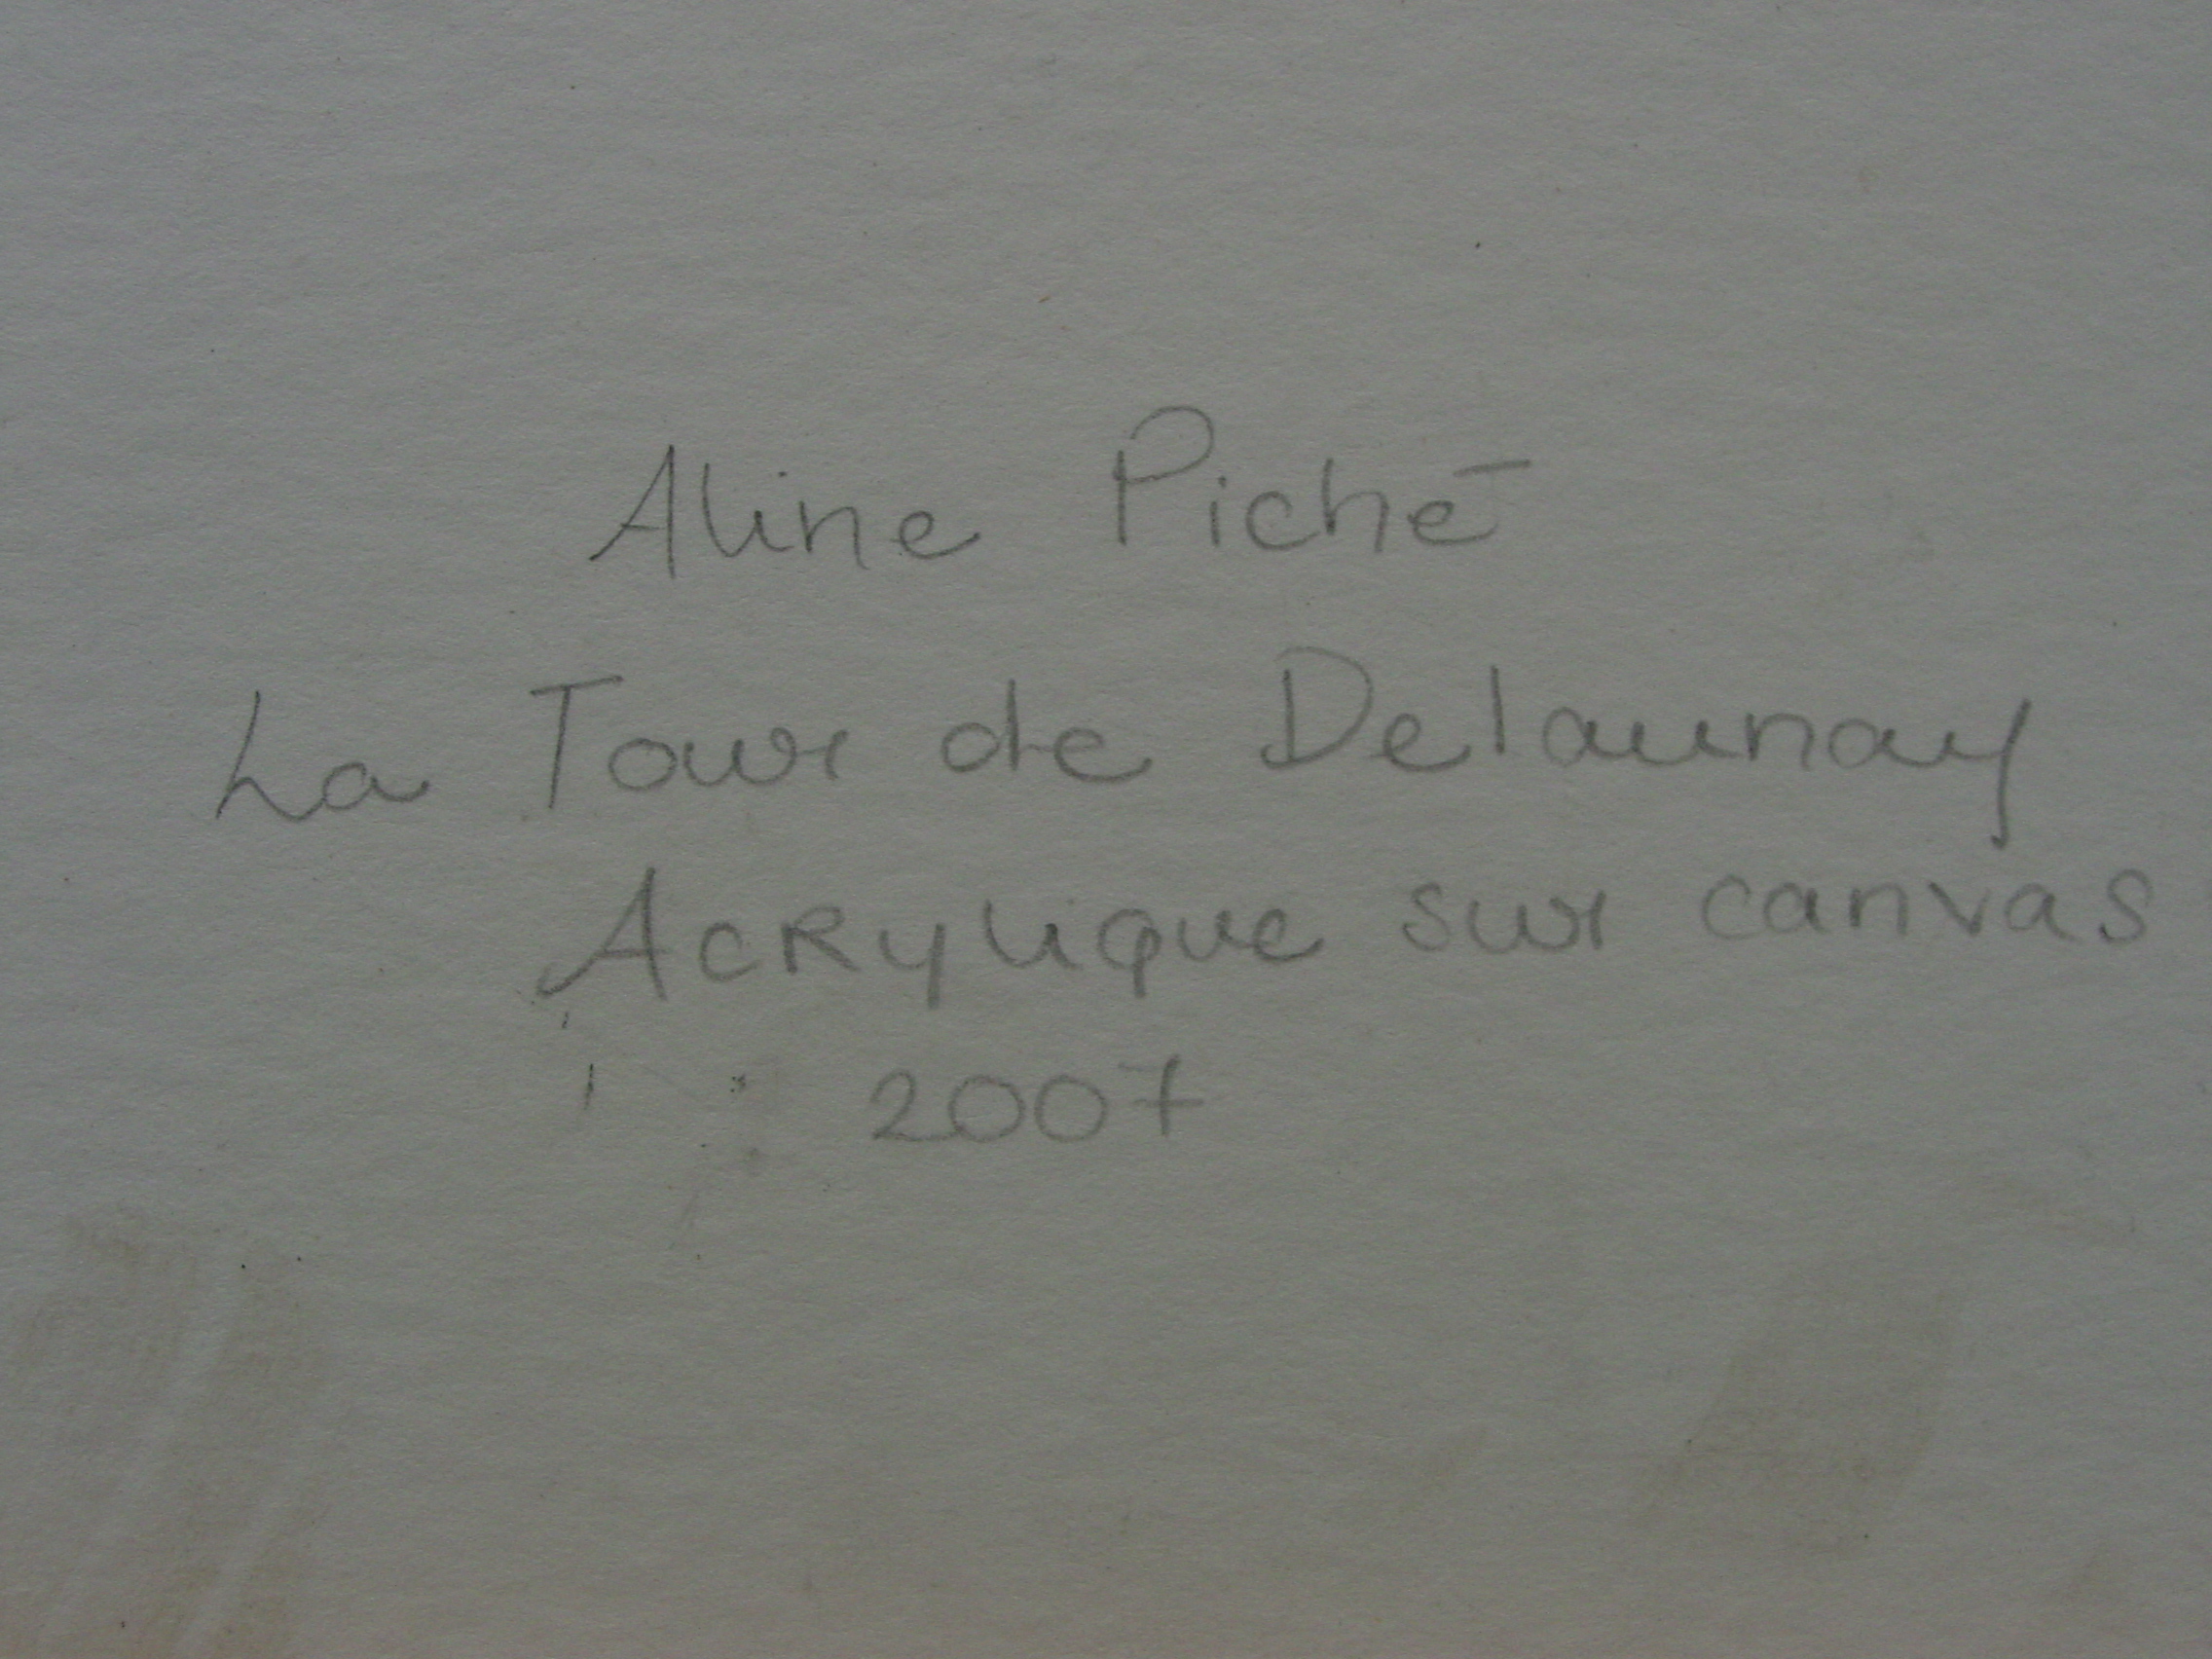 Aline Piché
La Tour de Delaunay
Acrylique sur canvas
2007